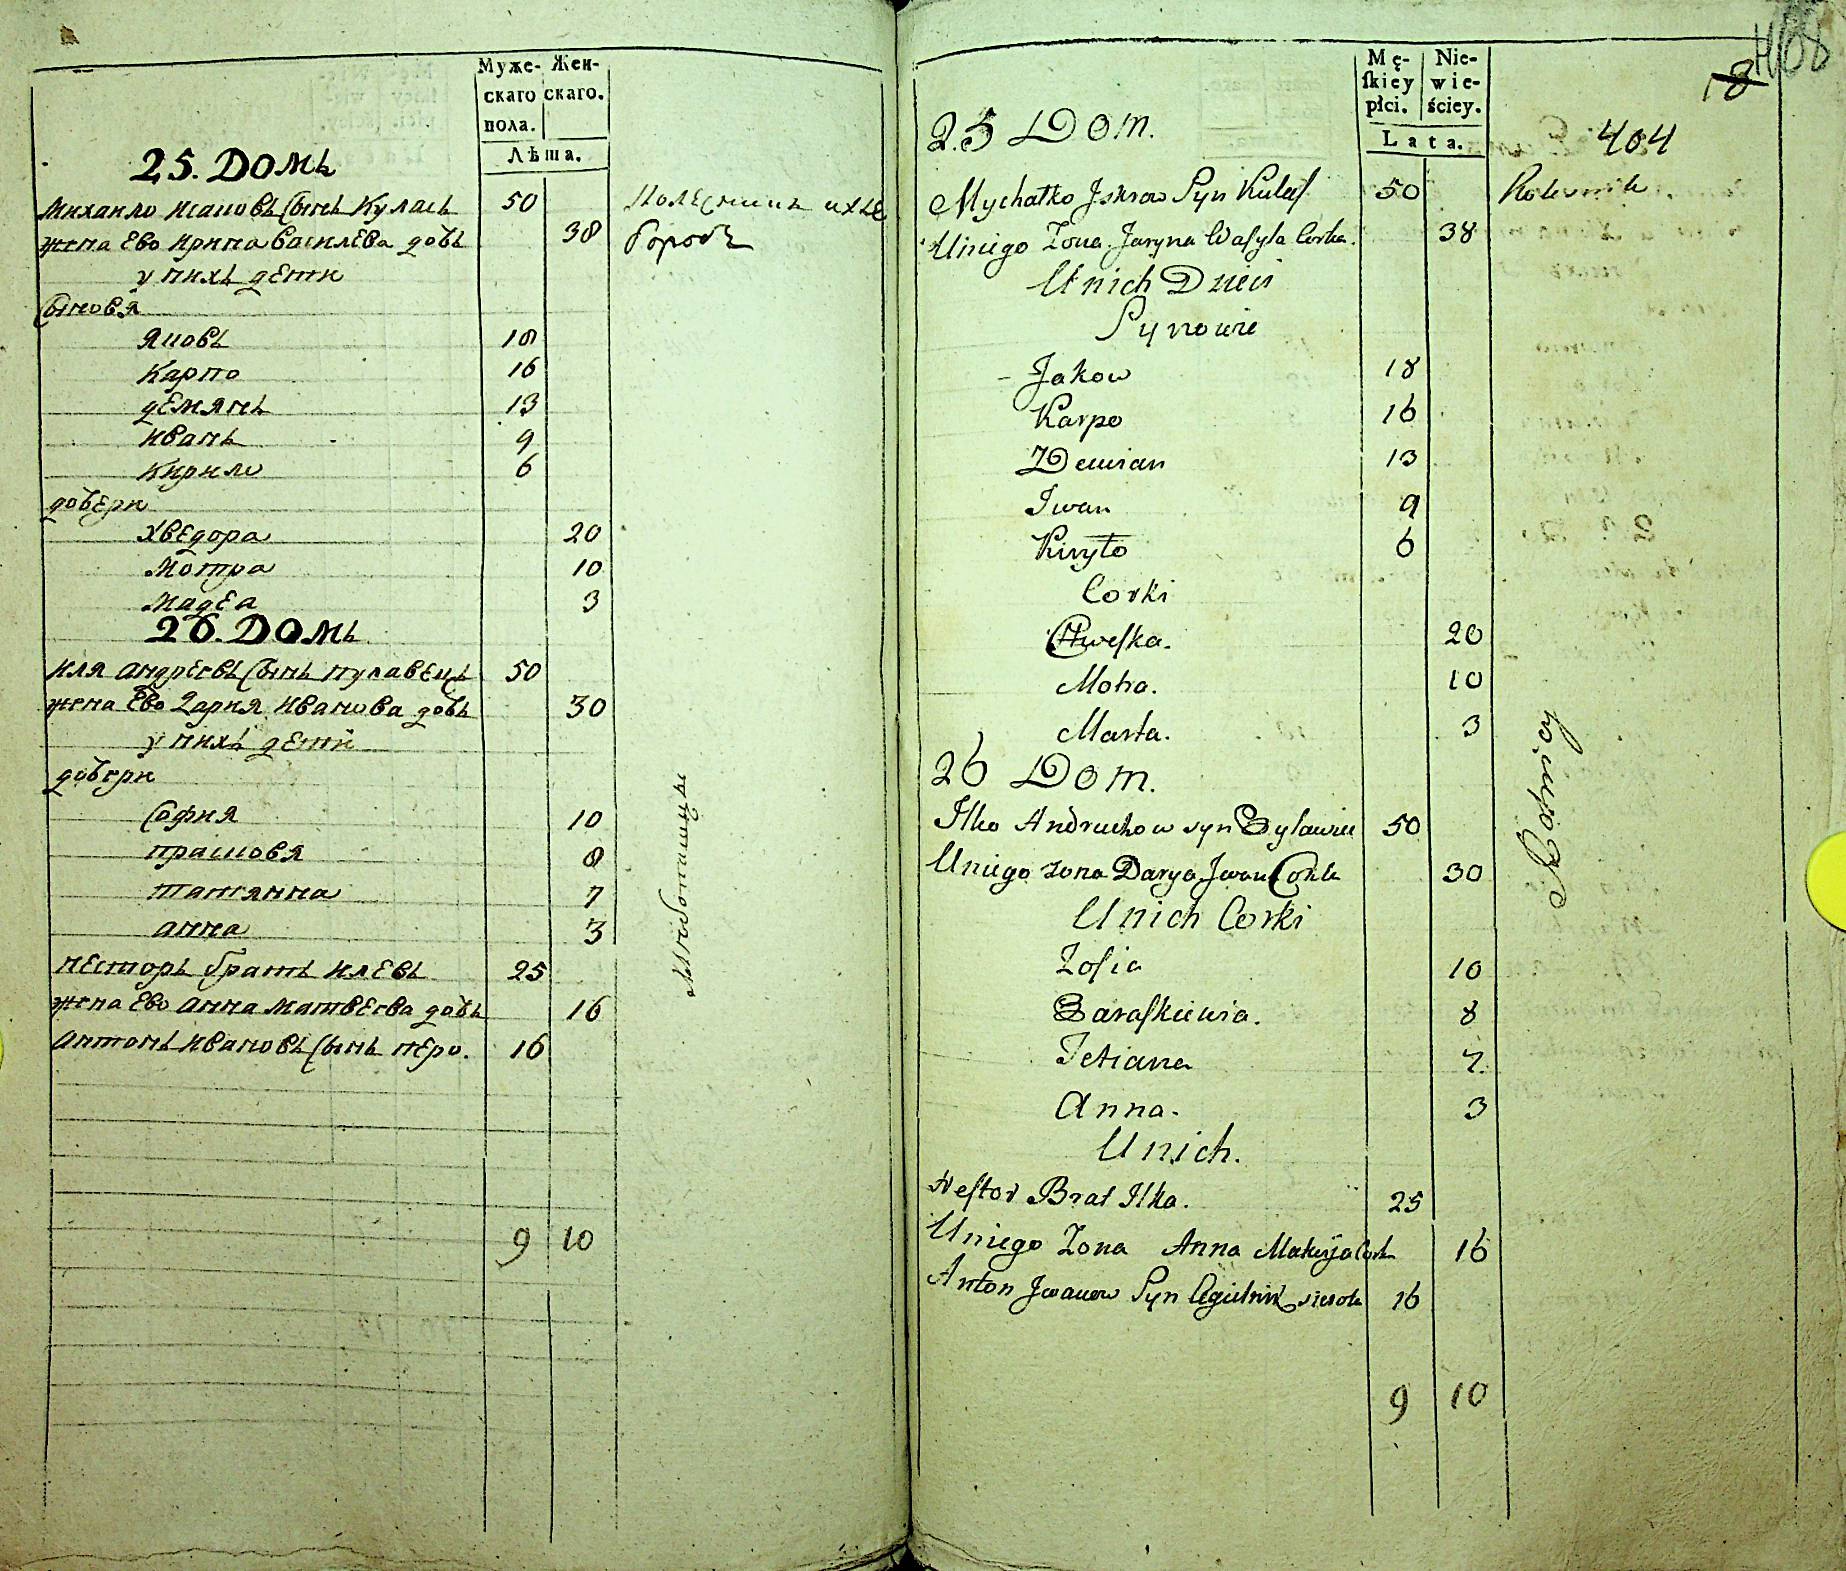 Муже-
скаго
пола.
Жен-
скаго.
Лѣта.
25. Домъ
Михаило Исаковъ Сынъ Куласъ 50
жена Ево Ирина Василева дочь 38
у нихъ дети
Сыновя
Яковъ 18
Карпо 16
демянъ 13
Иванъ 9
Кирило 6
дочери
Хведора 20
Мотра 10
3
26. Домъ
Иля Андреевъ Сынъ 50
жена Ево Дария Иванова дочь 30
у нихъ дети
дочери
София 10
прасковя 8
татянна 7
анна 3
несторъ братъ Илевъ 25
жена Ево Анна Матвеева дочь 16
Антонъ Ивановъ Сынъ 16
9 10
Колесникъ
городе
Работницы
Mę-
skiey
płci.
Nie-
wie-
ściey.
Lata.
18
408
404
25 Dom.
Mychałko Syn Kulas 50 Kolesnik
Uniego Zona Jaryna Wasyla Corka. 38
Unich Dzieci
Synowie
Jakow 18
Karpo 16
Demian 13
Iwan 9
Kiryło 6
Corki
Chweska. 20
Motra. 10
Marta. 3
26 Dom.
Ilko Andruchow syn 50
Uniego zona Darya Jwan Corka 30
Unich Corki
Zofia 10
Paraskiewia. 8
Tetiana 7.
Anna. 3
Unich.
Nestor Brat Ilka. 25
Uniego Zona Anna Corka 16
Anton Jwanow Syn 16
9 10
Robotnicy